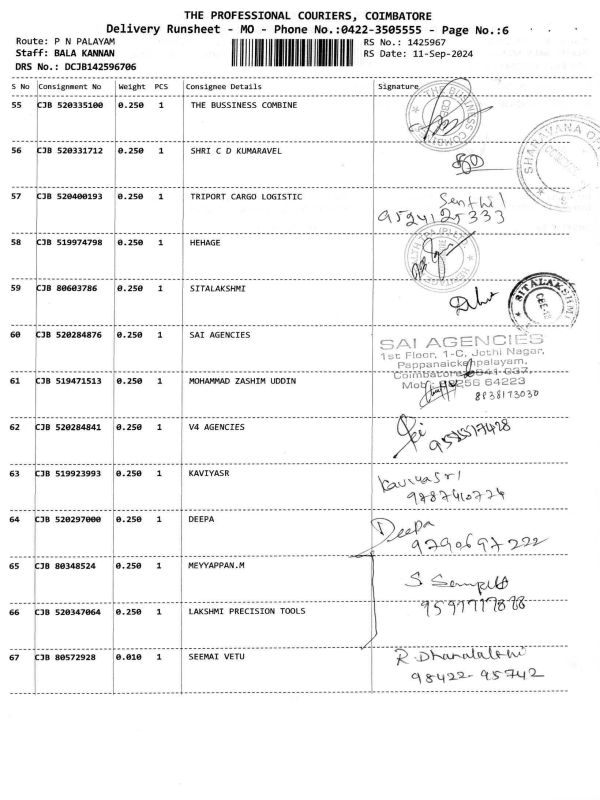 THE PROFESSIONAL COURIERS, COIMBATORE
Delivery Runsheet - MO - Phone No.:0422-3505555 - Page No.:6
Route: P N PALAYAM RS No.: 1425967
Staff: BALA KANNAN RS Date: 11-Sep-2024
DRS No.: DCJB142596706
S No Consignment No Weight PCS Consignee Details Signature
55 CJB 520335100 0.250 1 THE BUSSINESS COMBINE
56 CJB 520331712 0.250 1 SHRI C D KUMARAVEL
SHARAVANA
57 CJB 520400193 0.250 1 TRIPORT CARGO LOGISTIC Senthil
9524125333
58 CJB 519974798 0.250 1 HEHAGE
59 CJB 80603786 0.250 1 SITALAKSHMI
SITALAKSHMI
60 CJB 520284876 0.250 1 SAI AGENCIES
SAI AGENCIES
1st Floor, 1-C, Jothi Nagar,
Pappanaickenpalayam,
Coimbatore-641 037.
61 CJB 519471513 0.250 1 MOHAMMAD ZASHIM UDDIN
64223
8838173030
62 CJB 520284841 0.250 1 V4 AGENCIES
63 CJB 519923993 0.250 1 KAVIYASR Kaviyasri
9787410774
64 CJB 520297000 0.250 1 DEEPA Deepa
9790697222
65 CJB 80348524 0.250 1 MEYYAPPAN.M S
66 CJB 520347064 0.250 1 LAKSHMI PRECISION TOOLS
67 CJB 80572928 0.010 1 SEEMAI VETU R.
98422-95742